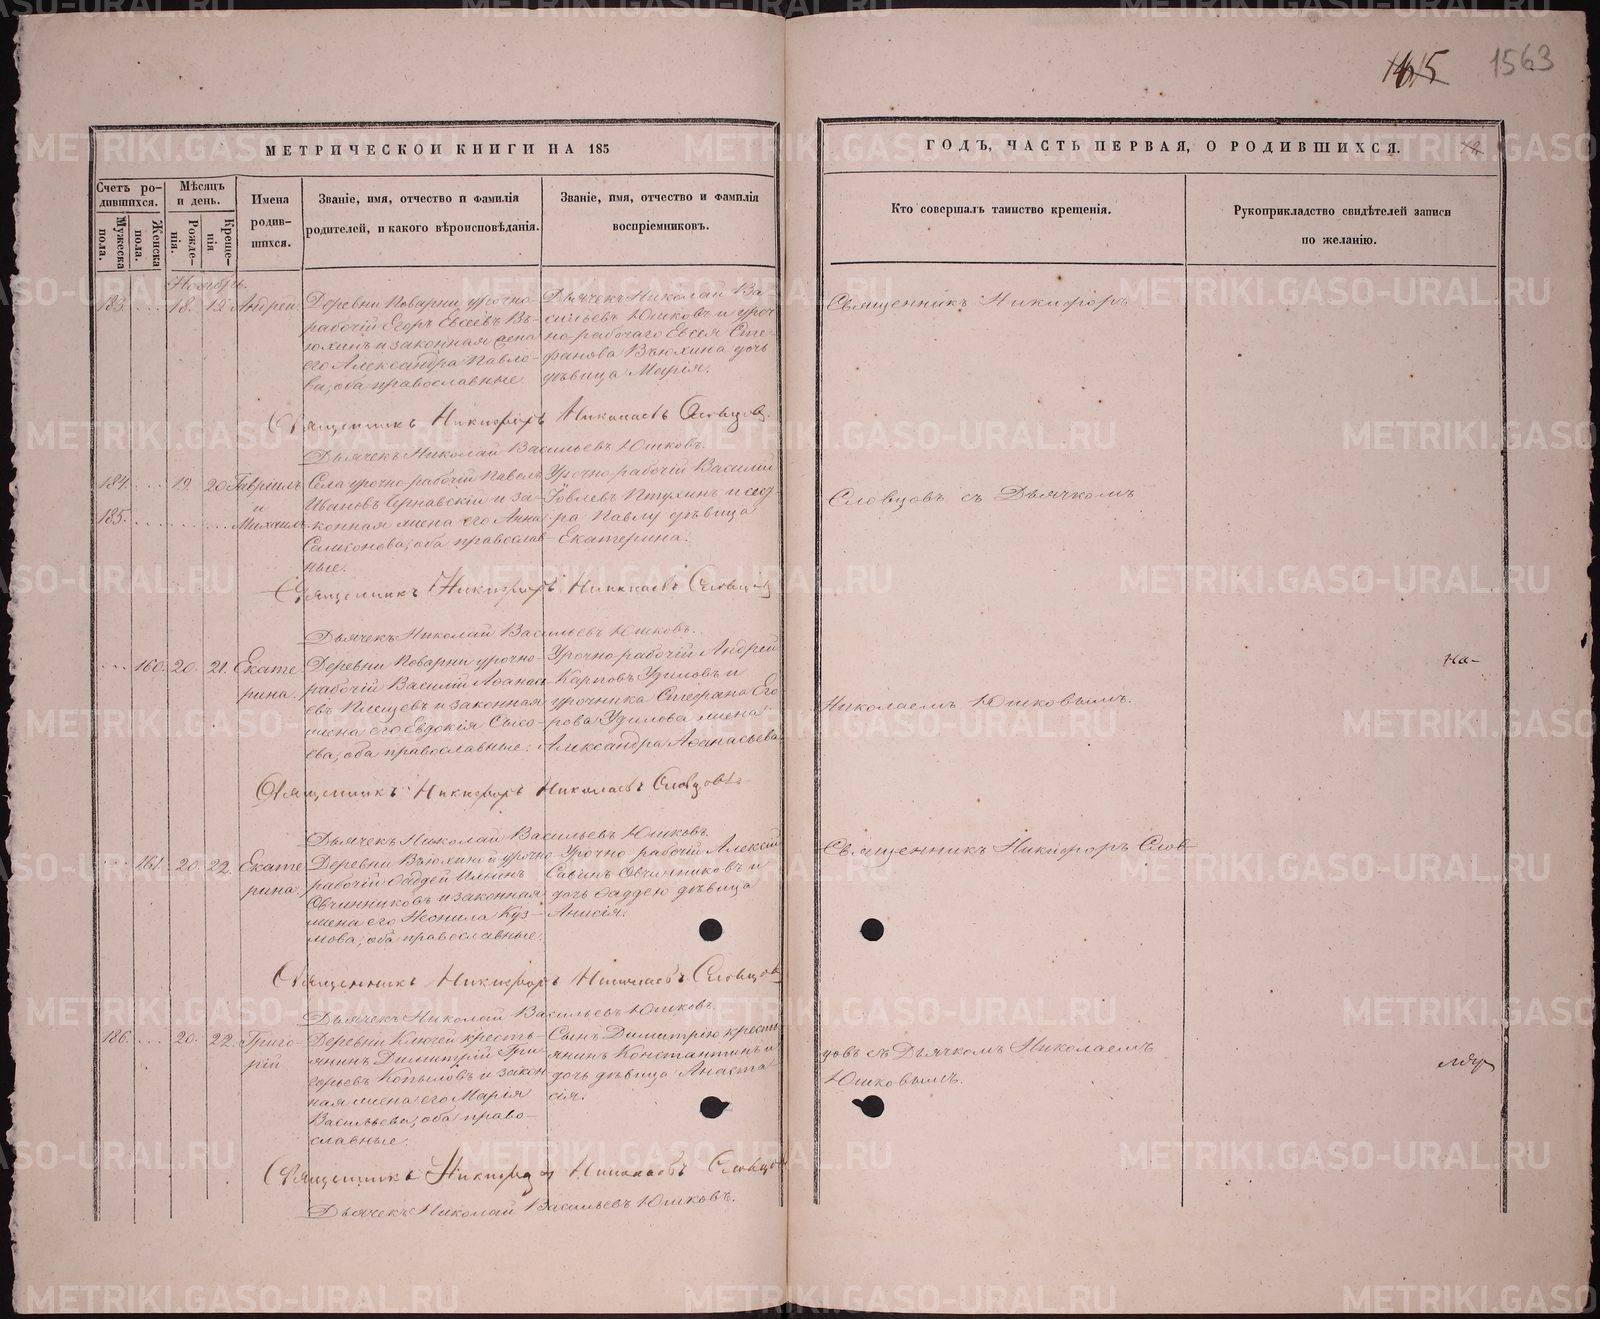 1563
МЕТРИЧЕСКОЙ КНИГИ НА 185
ГОДЪ, ЧАСТЬ ПЕРВАЯ, О РОДИВШИХСЯ.
Счетъ ро-
дившихся.
Мужеска пола.
Женска пола.
Мѣсяцъ
и день.
Рожде-
нія.
Креще-
нія
Имена
родив-
шихся.
Званіе, имя, отчество и фамилія
родителей, и какого вѣроисповѣданія.
Званіе, имя, отчество и фамилія
воспріемниковъ.
Кто совершалъ таинство крещенія.
Рукоприкладство свидѣтелей записи
по желанію.
Ноябрь.
183. 18. 19. Андрей.
Деревни Поварни урочно-
рабочій Егоръ Евсеевъ Въ-
юхинъ и законная жена
его Александра Павло-
ва, оба православные.
Дьячекъ Николай Ва-
сильевъ Юшковъ и уроч-
но-рабочаго Евсея Сте-
фанова Вьюхина дочь
дѣвица Марія.
Священникъ Никифоръ Николаевъ Словцовъ.
Дьячекъ Николай Васильевъ Юшковъ.
184. 19. 20. Гавріилъ
и
185. Михаилъ
Села урочно-рабочій Павелъ
Ивановъ Чернавскій и за-
конная жена его Анна
Самсонова, оба православ-
ные.
Урочно-рабочій Василій
Іовлевъ Птухинъ и сест-
ра Павлу дѣвица
Екатерина.
Священникъ Никифоръ Николаевъ Словцовъ
Дьячекъ Николай Васильевъ Юшковъ.
160. 20. 21. Екате
рина.
Деревни Поварни урочно-
рабочій Василій Афанась-
евъ Плещевъ и законная
жена его Евдокія Сысо-
ева, оба православные.
Урочно-рабочій Андрей
Карповъ Удиловъ и
урочника Стефана Его-
рова Удилова жена
Александра Афанасьева
Священникъ Никифоръ Николаевъ Словцовъ
Дьячекъ Николай Васильевъ Юшковъ.
161. 20. 22. Екате
рина.
Деревни Вьюхиной урочно-
рабочій Фаддей Ильинъ
Овчинниковъ и законная
жена его Неонила Куз-
мова, оба православные.
Урочно рабочій Алексѣй
Савинъ Овчинниковъ и
дочь Фаддею дѣвица
Анисія.
Священникъ Никифоръ Николаевъ Словцовъ
Дьячекъ Николай Васильевъ Юшковъ.
186. 20. 22. Григо-
рій
Деревни Ключей кресть-
янинъ Димитрій Гри-
горьевъ Копыловъ и закон-
ная жена его Марья
Васильева, оба право-
славные.
Сынъ Димитрію крестья-
нинъ Константинъ и
дочь дѣвица Анаста-
сія.
Священникъ Никифоръ Николаевъ Словцовъ
Дьячекъ Николай Васильевъ Юшковъ.
Священникъ Никифоръ
Словцовъ съ Дьячкомъ
Николаемъ Юшковымъ.
Священникъ Никифоръ Слов-
цовъ съ Дьячкомъ Николаемъ
Юшковымъ.
На-
METRIKI.GASO-URAL.RU